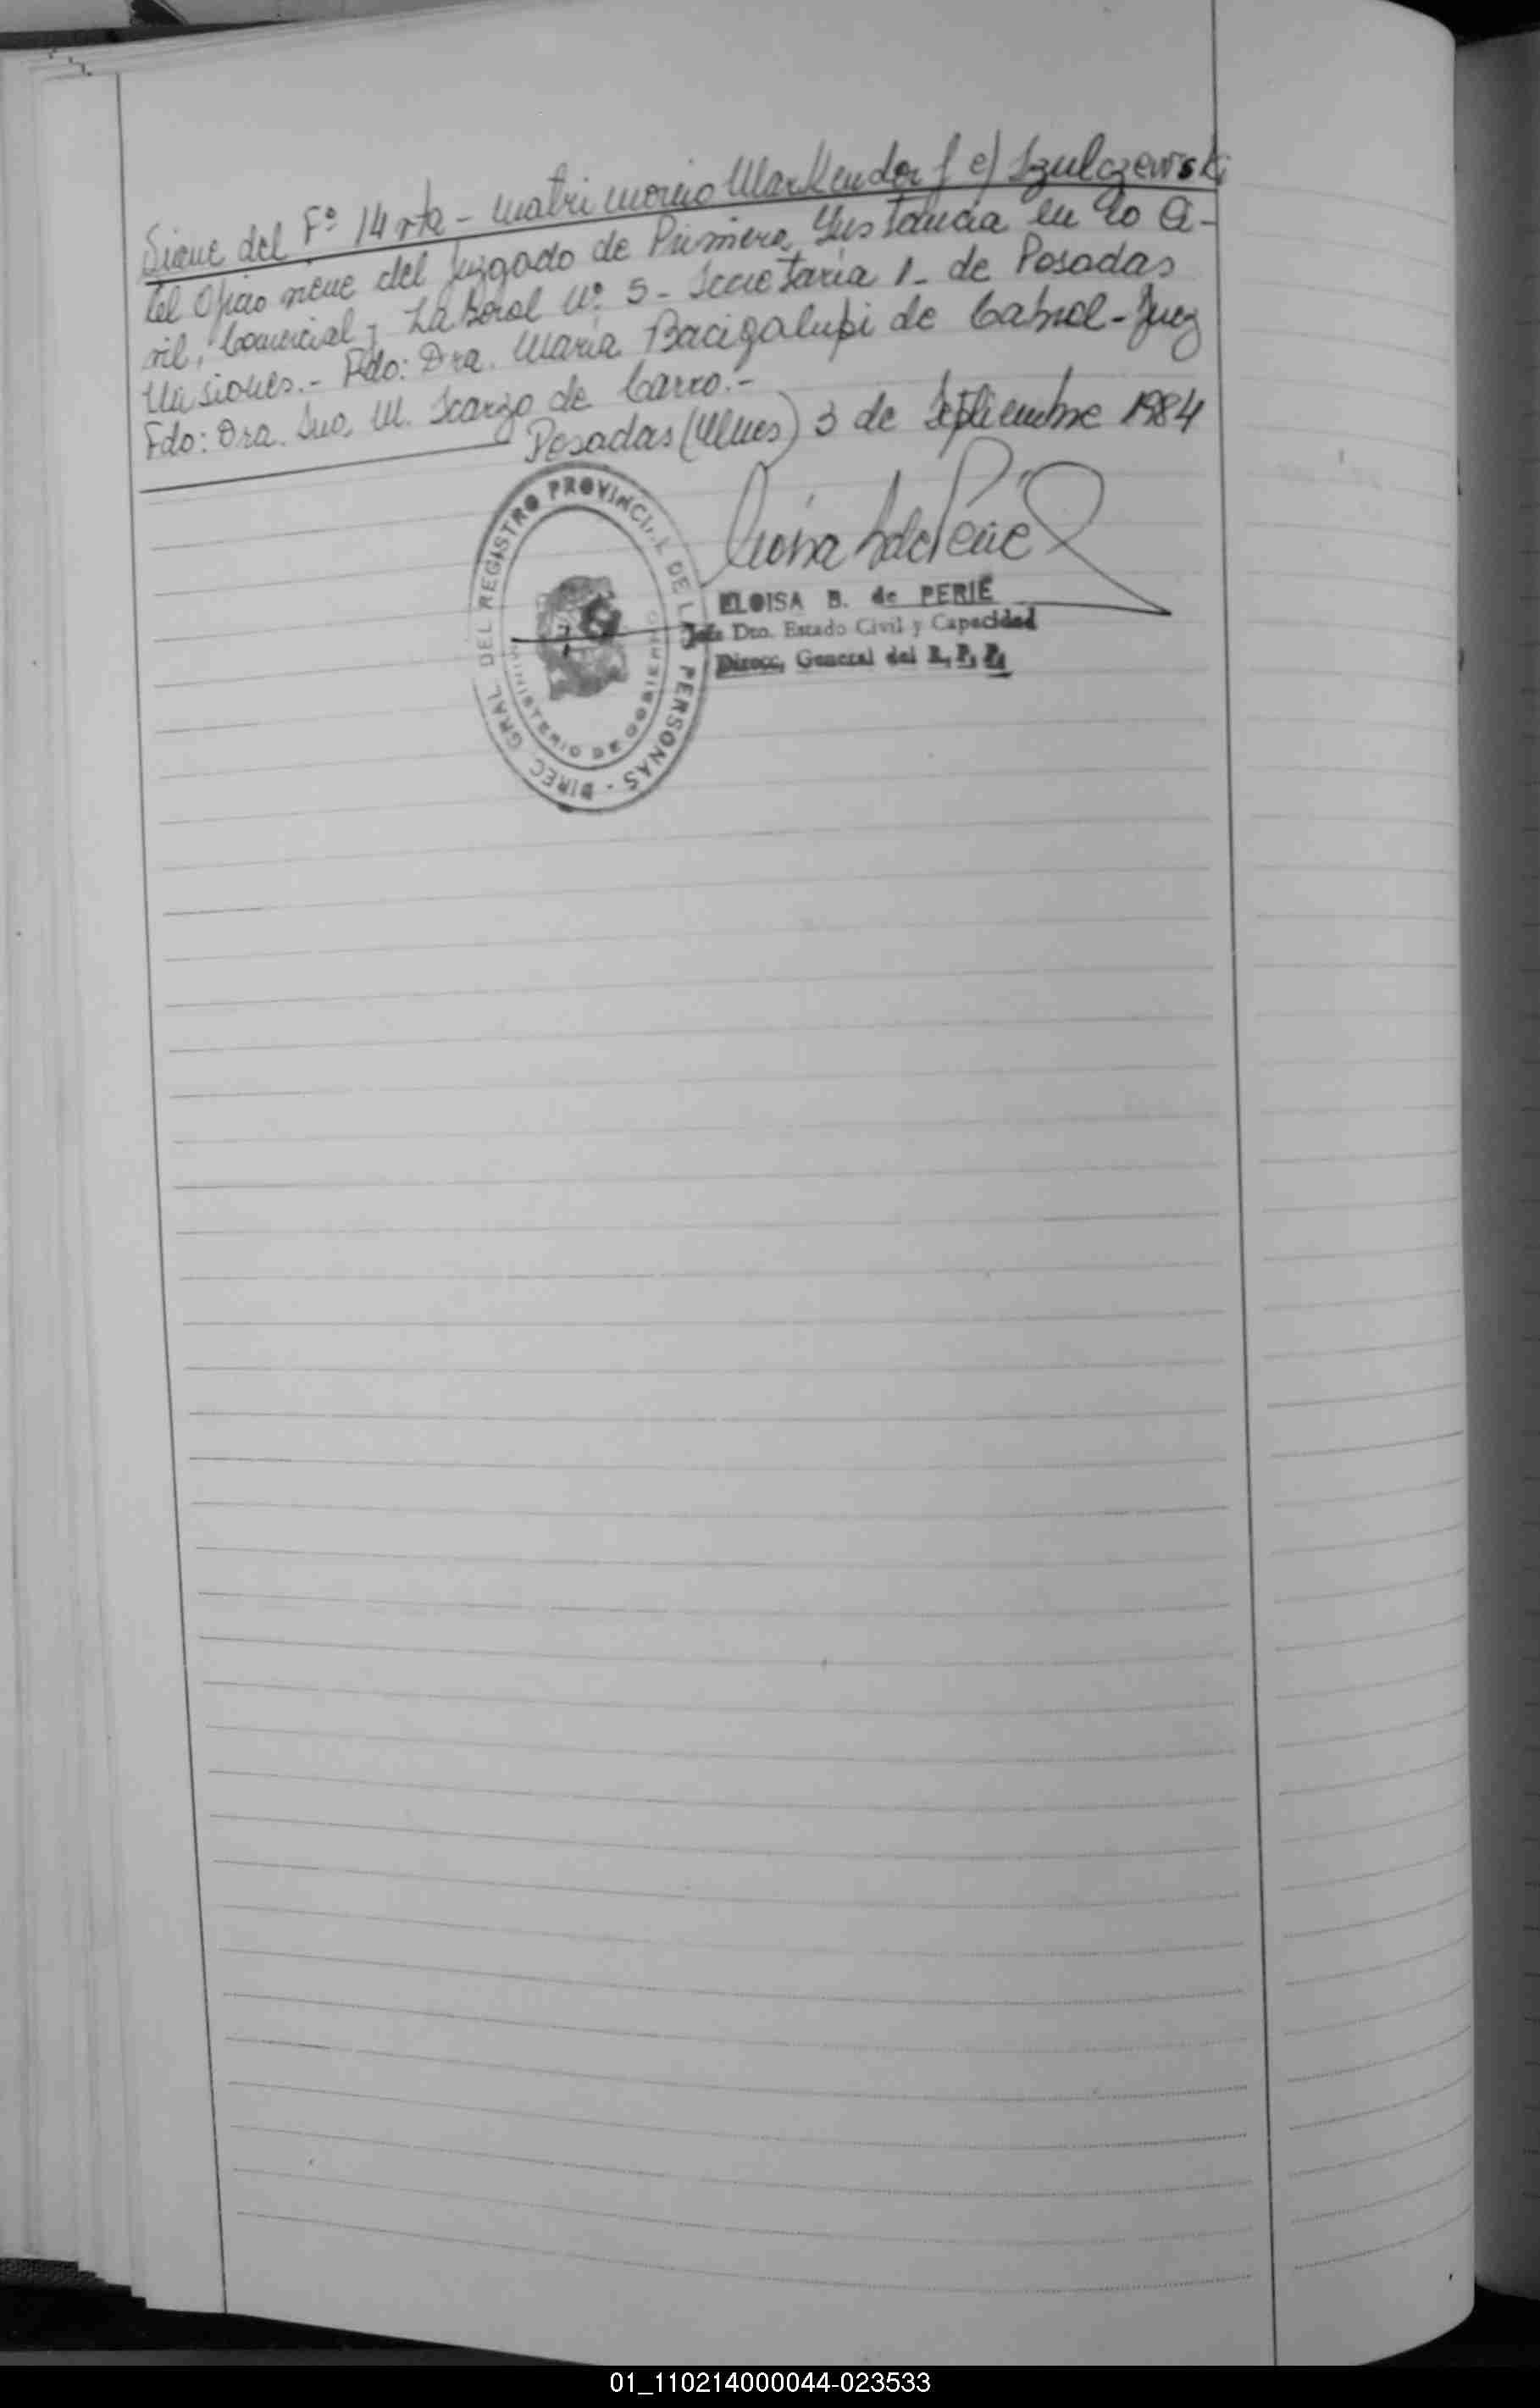 Sigue del Fº 14 vta - Matrimonio Markendorf c/ Szulczewski
tel Oficio viene del Juzgado de Primera Instancia en lo Ci-
vil, Comercial y Laboral Nº 5 - Secretaría 1 - de Posadas
Misiones.- Fdo: Dra. María Bacigalupi de Cabral - Juez
Fdo: Dra. M. Scarzo de Carro.-
Posadas (Mnes) 3 de Septiembre 1984
DIREC GRAL DEL REGISTRO PROVINCIAL DE LAS PERSONAS -
MINISTERIO DE GOBIERNO
ELOISA B. de PERIÉ
Jefe Dto. Estado Civil y Capacidad
Direcc, General del R, P, P,
01_110214000044-023533